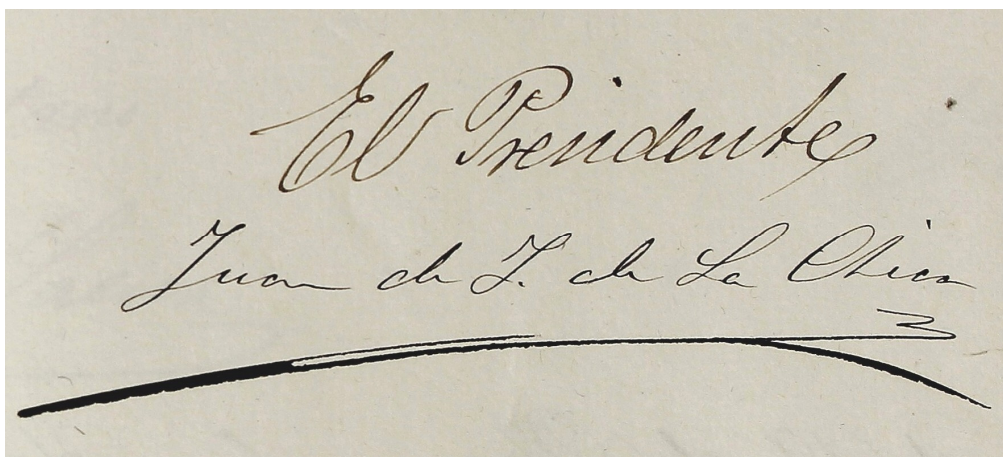 El Presidente
Juan de J. de La Chica